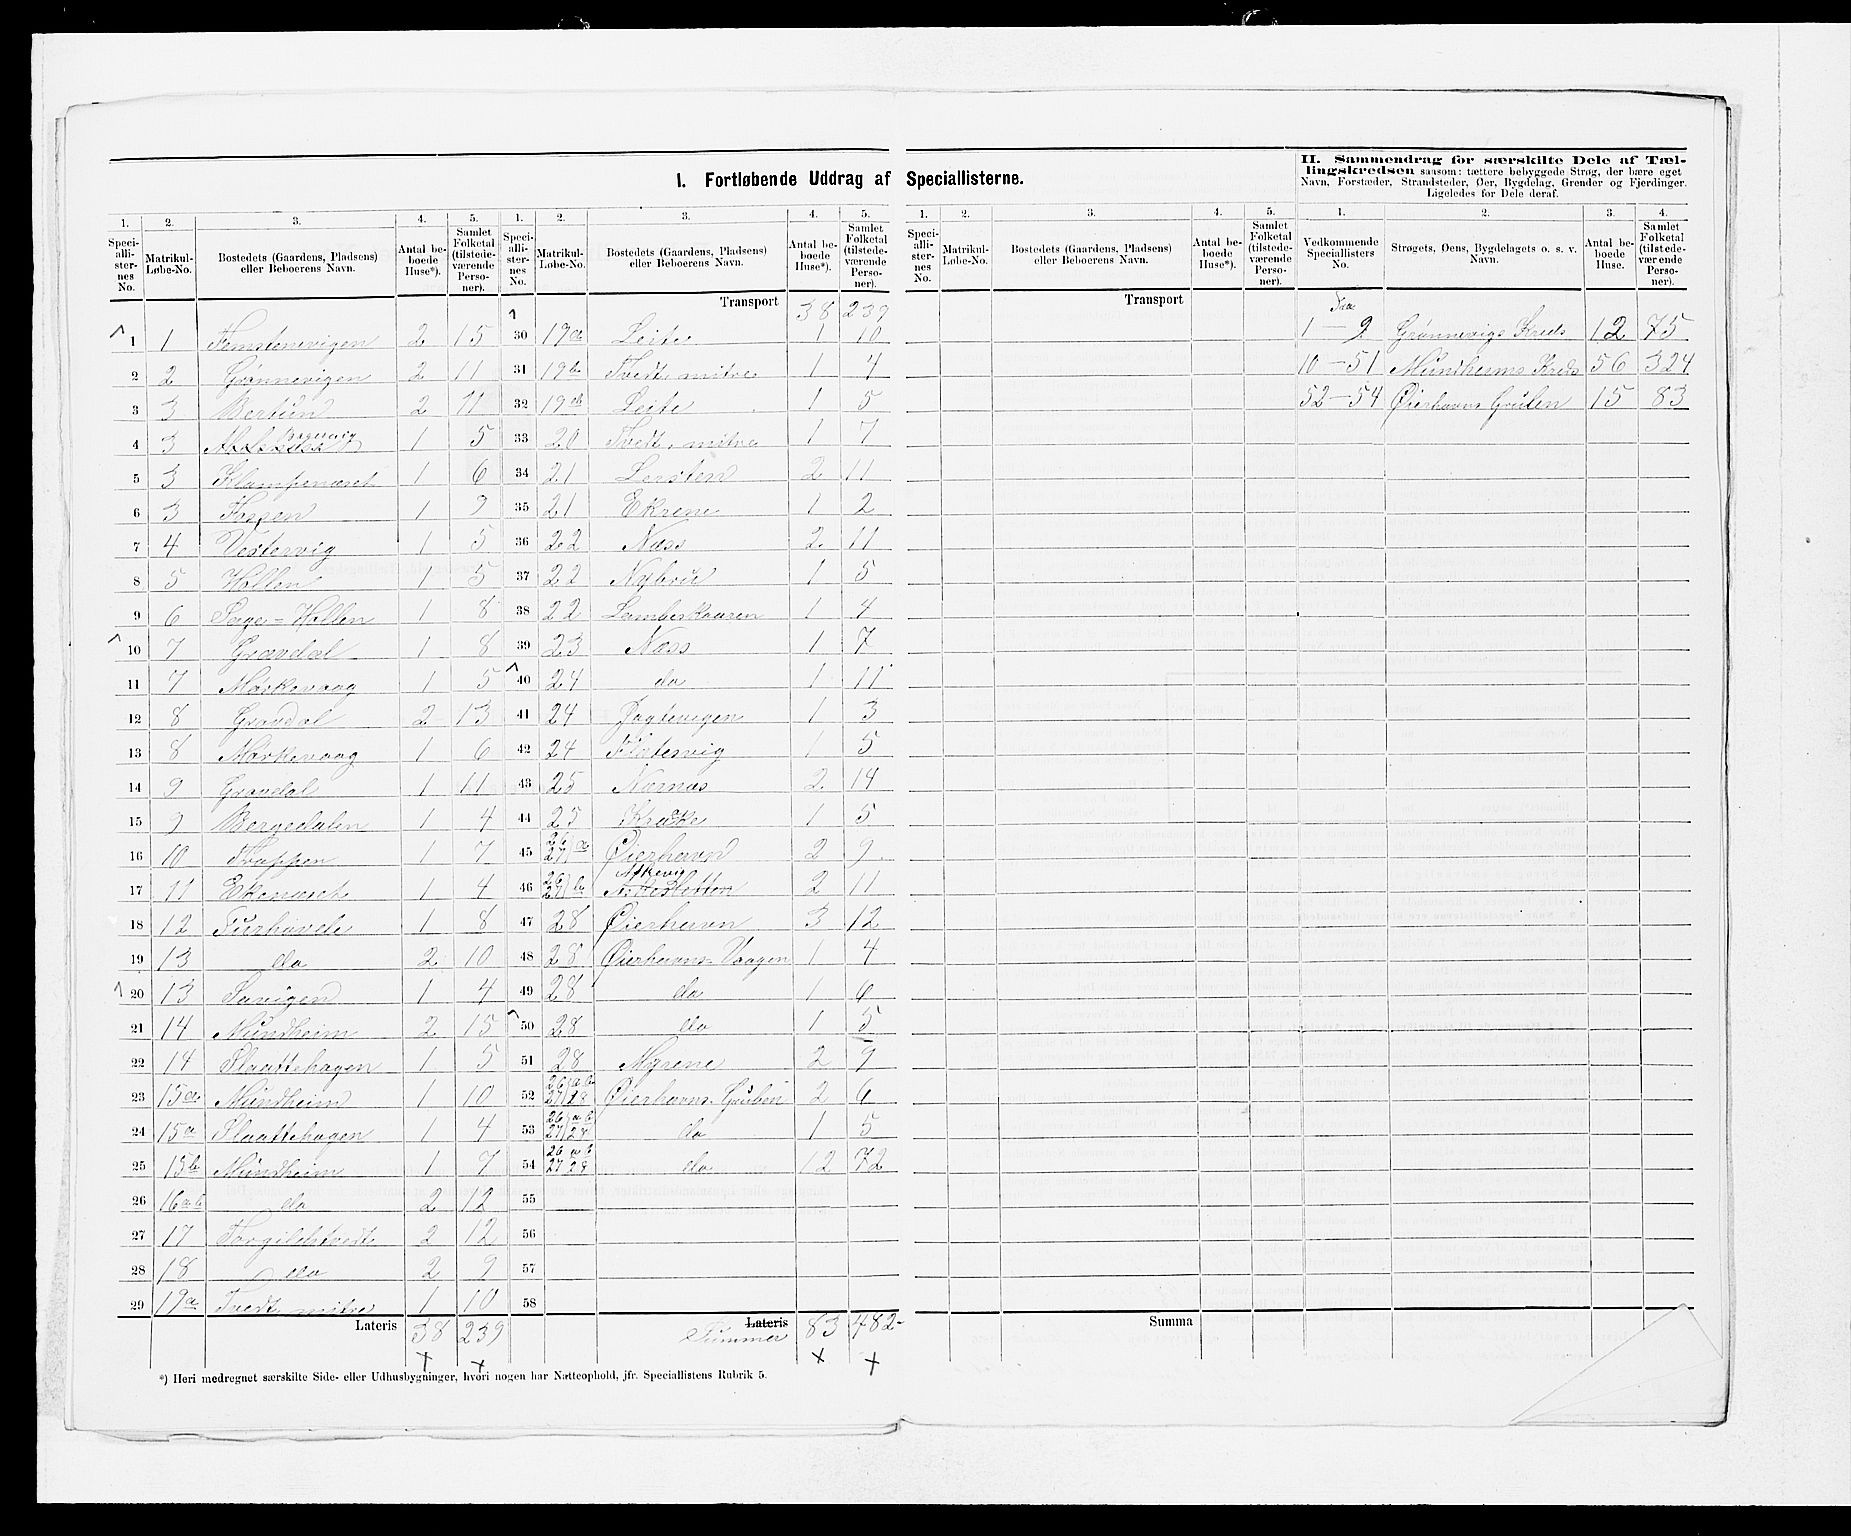 I. Fortløbende Uddrag af Speciallisterne.
II. Sammendrag for særskilte Dele af Tæl-
lingskredsen saasom: tættere bebyggede Strøg, der bære eget
Navn, Forstæder, Strandsteder, Øer, Bygdelag, Grender og Fjerdinger.
Ligeledes for Dele deraf.
1. 2. 3. 4. 5. 1. 2. 3. 4. 5. 1. 2. 3. 4. 5. 1. 2. 3. 4.
Speci-alli-ster-nes No. Matrikul-Løbe-No. Bostedets (Gaardens, Pladsens) eller Beboerens Navn. Antal be-boede Huse*). Samlet Folketal (tilstede-værende Perso-ner).
Speci-alli-ster-nes No. Matrikul-Løbe-No. Bostedets (Gaardens, Pladsens) eller Beboerens Navn. Antal be-boede Huse*). Samlet Folketal (tilstede-værende Perso-ner).
Speci-alli-ster-nes No. Matrikul-Løbe-No. Bostedets (Gaardens, Pladsens) eller Beboerens Navn. Antal be-boede Huse*). Samlet Folketal (tilstede-værende Perso-ner).
Vedkommende Speciallisters No. Strøgets, Øens, Bygdelagets o. s. v. Navn. Antal be-boede Huse. Samlet Folketal (tilstede-værende Perso-ner).
1 1 Femstenevigen 2 15
2 2 Grønnevigen 2 11
3 3 Berlund 2 11
4 3 1 5
5 3 Klampenæset 1 6
6 3 Fossen 1 9
7 4 Vestervig 1 5
8 5 Hollen 1 5
9 6 Sage-Hollen 1 8
10 7 Gravdal 1 8
11 7 Markevaag 1 5
12 8 Gravdal 2 13
13 8 Markevaag 1 6
14 9 Gravdal 1 11
15 9 Bergedalen 1 4
16 10 Trappen 1 7
17 11 Ekenæset 1 4
18 12 Furhovde 1 8
19 13 do 2 10
20 13 Savigen 1 4
21 14 Mundheim 2 15
22 14 Slaattehagen 1 5
23 15a Mundheim 1 10
24 15a Slaattehagen 1 4
25 15b Mundheim 1 7
26 16ab do 2 12
27 17 Torgilstvedt 2 12
28 18 do 2 9
29 19a Tvedt, mitre 1 10
Lateris 38 239
Transport 38 239
30 19a Leite 1 10
31 19b Tvedt, mitre 1 4
32 19b Leite 1 5
33 20 Tvedt, mitre 1 7
34 21 Lersten 2 11
35 21 Ekrene 1 2
36 22 Næss 2 11
37 22 Nybru 1 5
38 22 Lambeskaaren 1 4
39 23 Næss 1 7
40 24 do 1 11
41 24 Jagtevigen 1 3
42 24 Flatervig 1 5
43 25 Nærnæs 2 14
44 25 Kraake 1 5
45 26 27 a Øierhavn 2 9
46 26 27 b 2 11
47 28 Øierhavn 3 12
48 28 Øierhavns-Vaagen 1 4
49 28 do 1 6
50 28 do 1 5
51 28 Myrene 2 9
52 26 ab 27 28 Øierhavns-Gruben 2 6
53 26 ab 27 28 do 1 5
54 26 ab 27 28 do 12 72
55
56
57
58
Lateris Summer 83 482
Transport
Summa
Fra
1-9 Grønnevigs Kreds 12 75
10-51 Mundheims Kreds 56 324
52-54 Øierhavns Gruben 15 83
*) Heri medregnet særskilte Side- eller Udhusbygninger, hvori nogen har Natteophold, jfr. Speciallistens Rubrik 5.